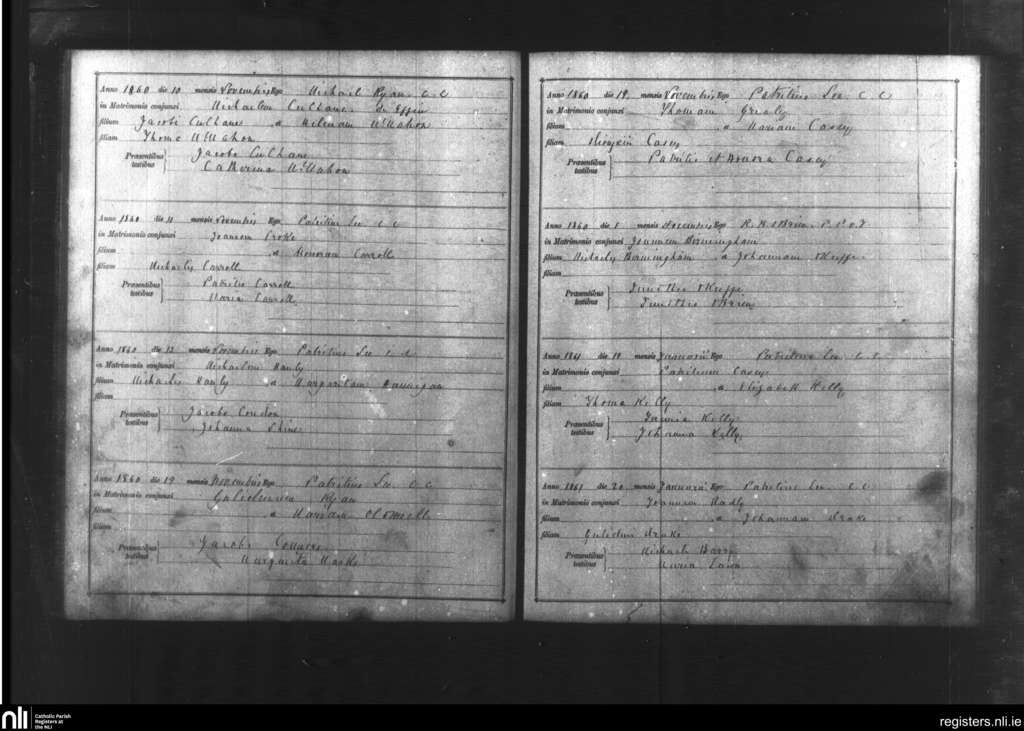 Anno 1860 die 10 mensis Novembris Ego Michael Ryan C C
in Matrimonio conjunxi Michaelem Culhane de Effin
filium Jacobi Culhane a Helenam McMahon
filiam Thoma McMahon
Præsentibus Jacobo Culhane
testibus Catherina McMahon
Anno 1860 die 11 mensis Novembris Ego Patritius Lee C C
in Matrimonio conjunxi Joannem Croke
filium a Honoram Carroll
filiam Michaelis Carroll
Præsentibus Patritio Carroll
testibus Maria Carroll
Anno 1860 die 13 mensis Novembris Ego Patritius Lee C C
in Matrimonio conjunxi Michaelem Hanly
filium Michaelis Hanly a Margaritam
filiam
Præsentibus Jacobo Condon
testibus Johanna Shine
Anno 1860 die 19 mensis Novembris Ego Patritius Lee C C
in Matrimonio conjunxi Gulielmum Ryan
filium a Mariam
filiam
Præsentibus Jacobo
testibus Margarita
Anno 1860 die 19 mensis Novembris Ego Patritius Lee C C
in Matrimonio conjunxi Thomam
filium a Mariam Casey
filiam Dionysii Casey
Præsentibus Patritio et Honora Casey
testibus
Anno 1860 die 1 mensis Novembris Ego R. H. OBrien P. P.
in Matrimonio conjunxi Joannem Bermingham
filium Michaelis Bermingham a Johannam OKeeffe
filiam
Præsentibus Timotheo OKeeffe
testibus Timotheo OBrien
Anno 1861 die 10 mensis Januarii Ego Patritius Lee C C
in Matrimonio conjunxi Patritium Casey
filium a Elizabeth Kelly
filiam Thoma Kelly
Præsentibus Kelly
testibus Johanna Kelly
Anno 1861 die 20 mensis Januarii Ego Patritius Lee C C
in Matrimonio conjunxi Joannem
filium a Johannam Drake
filiam Gulielmi Drake
Præsentibus Michaele Barry
testibus Maria
nli Catholic Parish
Registers at
the NLI
registers.nli.ie